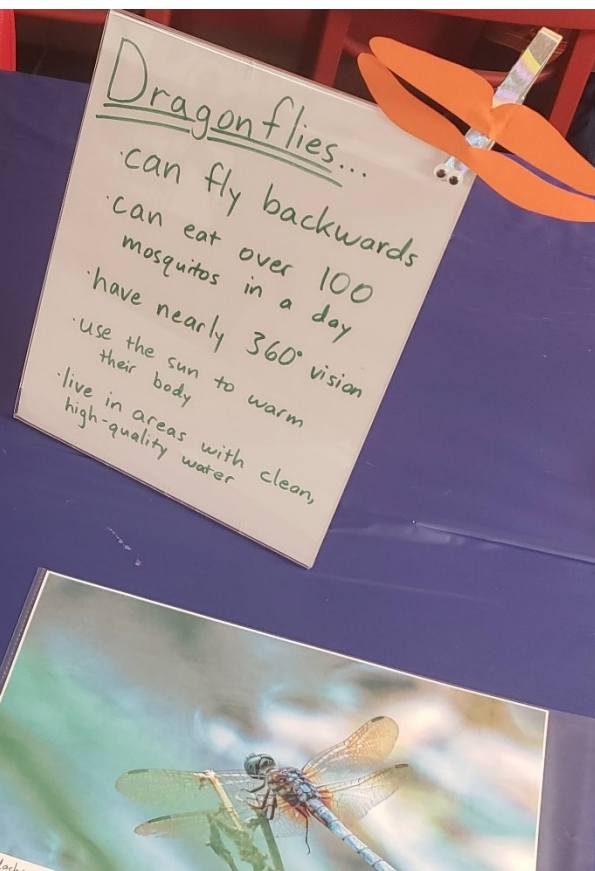 Dragonflies...
·can fly backwards
·can eat over 100
mosquitos in a day
·have nearly 360° vision
·use the sun to warm
their body
·live in areas with clean,
high-quality water